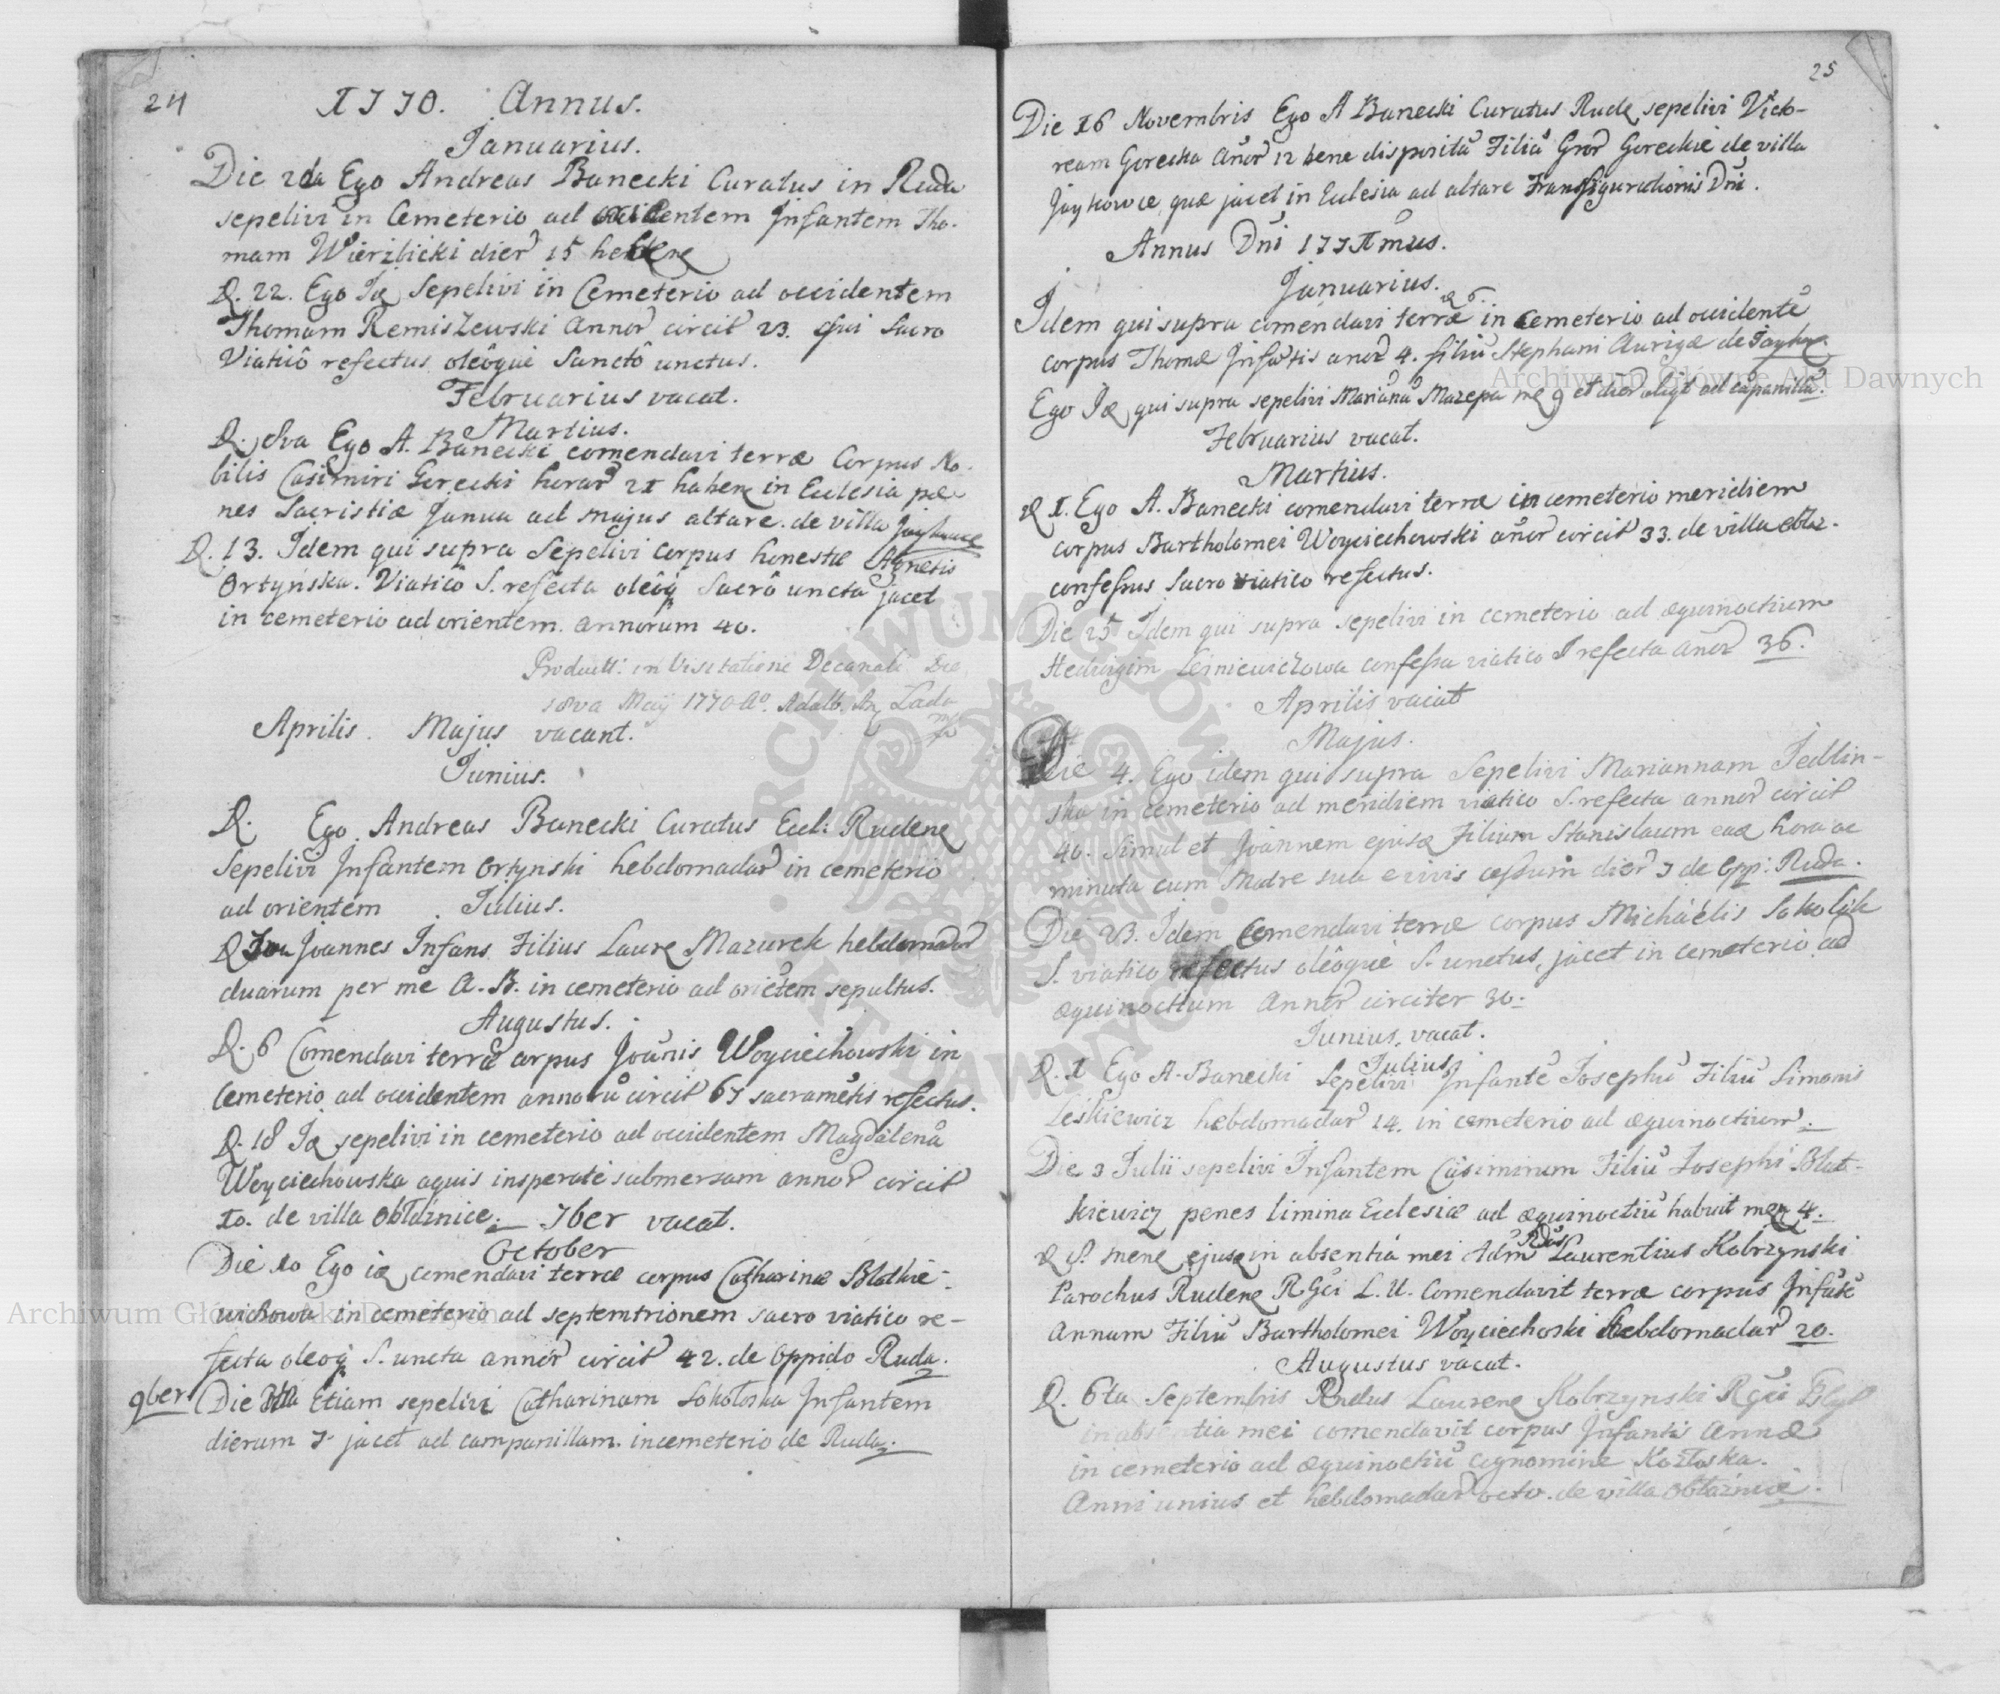 24
1770. Annus.
Januarius.
Die 2da Ego Andreas Banecki Curatus in Ruda
sepelivi in Cemeterio ad occidentem Infantem Tho-
mam Wierzbicki dier 15
D. 22. Ego Idē Sepelivi in Cemeterio ad occidentem
Thomam Remiszewski Annor circit 23. qui Sacro
Viaticô refectus oleôque Sanctô unctus.
Februarius vacat.
Martius.
D. 8va Ego A. Banecki comendavi terræ Corpus No-
bilis Casimiri Gorecki horar 21 haben in Ecclesia pœ-
nes Sacristiæ Janua ad majus altare. de villa
D. 13. Idem qui supra Sepelivi corpus honestæ Agnetis
Ortyńska. Viaticô S. refecta oleôq Sacrô uncta jacet
in cemeterio ad orientem. annorum 40.
Product: in Visitatione Decanali Die
18va Maij 1770 Ao. Adalb.
Aprilis. Majus vacant.
Junius.
D. Ego Andreas Banecki Curatus Eccl: Rudenę
Sepelivi Infantem Ortynski hebdomadar in cemeterio
ad orientem Julius.
D Joannes Infans Filius Laurę Mazurek hebdomadar
duarum per me A. B. in cemeterio ad oriētem sepultus.
Augustus.
D. 6 Comendavi terræ corpus Joānis Woyciechowski in
Cemeterio ad occidentem annorū circit 67 sacramētis refectus.
D. 18 Idē sepelivi in cemeterio ad occidentem Magdalenā
Woyciechowska aquis insperate submersam annor circit
10. de villa Obłaznice. 7ber vacat.
October
Die 10 Ego idē comendavi terræ corpus Catharinæ Blatkie-
wichowa in cemeterio ad septemtrionem sacro viatico re-
fecta oleoq S. uncta annor circit 42. de Oppido Ruda.
9ber Die Etiam sepelivi Catharinam Sokołoska Infantem
dierum 7 jacet ad campanillam in cemeterio de Ruda.
25
Die 16 Novembris Ego A Banecki Curatus Rudę sepelivi Victo-
ream Gorecka añor 12 bene dispositā Filiā Gnor Goreckie de villa
Jaykowce quæ jacet in Eclesia ad altare Transfigurationis Dni.
Annus Dni 1771mus.
Januarius.
D 6.
Idem qui supra comendavi terræ in cemeterio ad occidentē
corpus Thomæ Infātis anor 4. filiū Stephani Aurigæ de
Ego Idē qui supra sepelivi Mariānā Mazepa mę 9 et dier aliqt ad cāpanillā.
Februarius vacat.
Martius.
D 1. Ego A. Banecki comendavi terræ in cemeterio meridiem
corpus Bartholomei Woyciechowski añor circit 33. de villa
confessus Sacro viatico refectus.
Die 25 Idem qui supra sepelivi in cemeterio ad æquinoctium
Hedvigim confessa viatico S refecta añor 36.
Aprilis vacat
Majus.
Die 4. Ego idem qui supra Sepelivi Mariannam Jedlin-
ska in cemeterio ad meridiem viatico S. refecta annor circit
40. Simul et Joannem ejusq Filium Stanislaum eadē hora ac
minuta cum Matre sua e vivis cessum dier 7 de Opp: Ruda.
Die 23. Idem Comendavi terræ corpus Michaélis Sokołik
S. viatico refectus oleôque S. unctus, jacet in cemeterio ad
æquinoctium Annor circiter 30.
Junius, vacat.
Julius
D. 1 Ego A. Banecki Sepelivi Infantē Josephū Filiū Simonis
Leskiewicz hebdomadar 14. in cemeterio ad æquinoctium.
Die 3 Julii sepelivi Infantem Casimirum Filiū Josephi Blat-
kiewicz penes limina Eclesiæ ad æquinoctiū habuit mę 4.
D 8. mene ejusq in absentiá mei Adm Rdus Laurentius Kobrzynski
Parochus Rudenę RGci L. U. Comendavit terræ corpus Infātē
Annam Filiū Bartholomei Woyciechoski hebdomadar 20.
Augustus vacat.
D. 6ta Septembris Rndus Laurenę Kobrzynski RGci
in absentia mei comendavit corpus Infantis Annæ
in cemeterio ad æquinoctiū cognomine Kozłoska.
Anni unius et hebdomadar octo. de villa Obłaznice.
Archiwum Główne Akt Dawnych
Archiwum Główne Akt Dawnych
ARCHIWUM GŁÓWNE AKT DAWNYCH